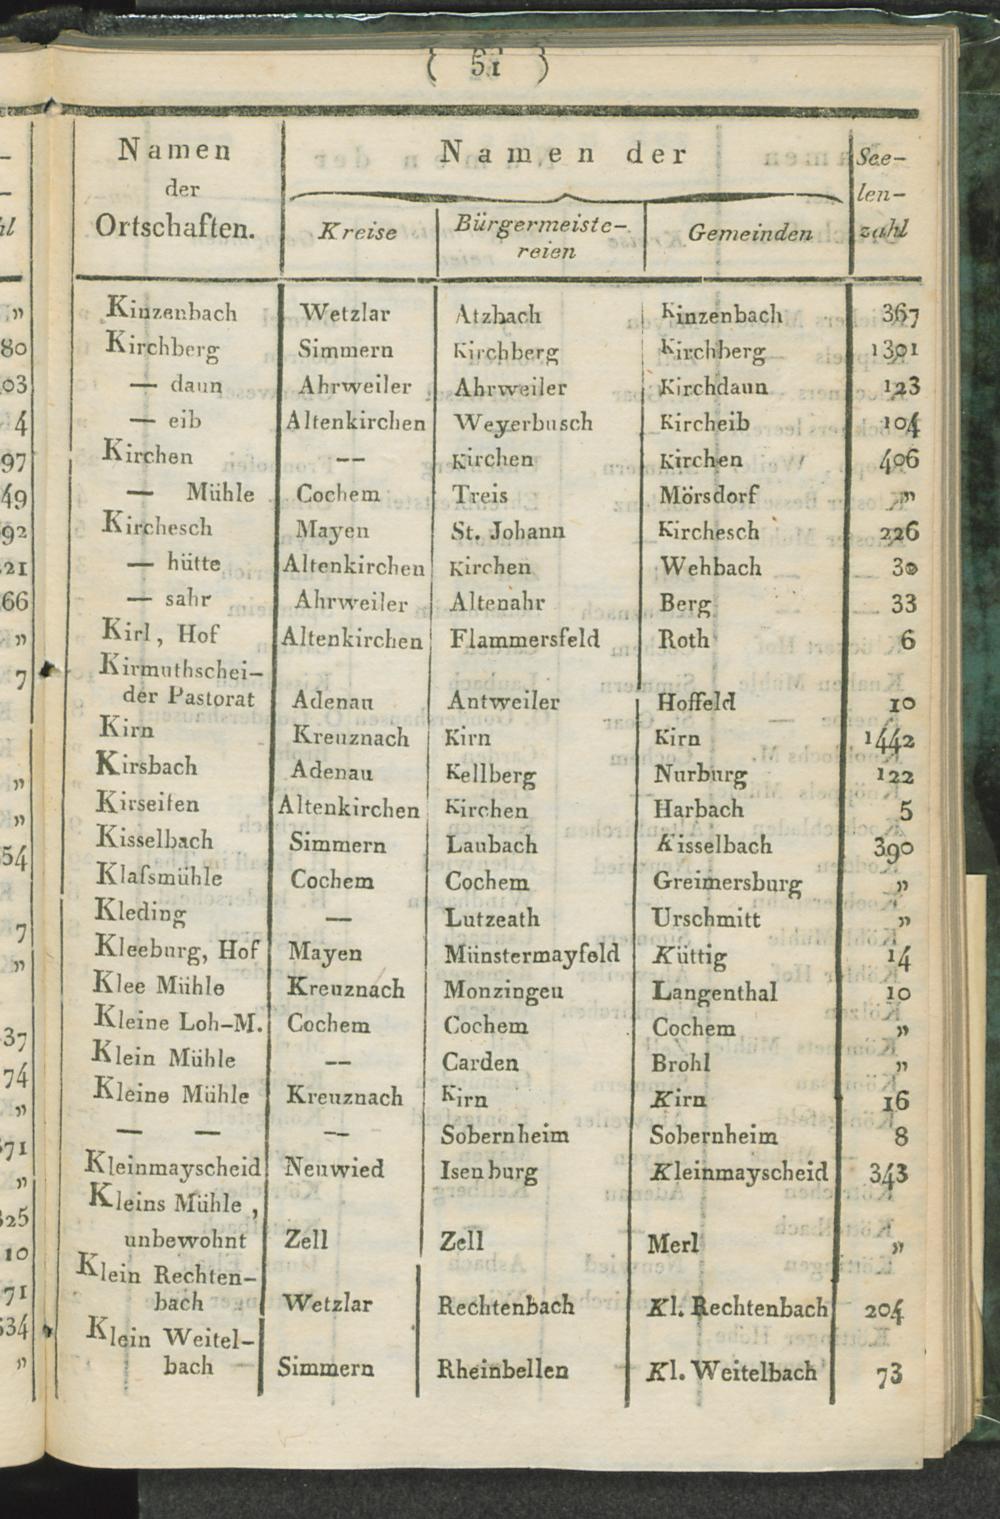 ( 51 )
Namen der Ortschaften. | Namen der | Seelenzahl
Kreise | Bürgermeiste-reien | Gemeinden
Kinzenbach Wetzlar Atzbach Kinzenbach 367
Kirchberg Simmern Kirchberg Kirchberg 1301
— daun Ahrweiler Ahrweiler Kirchdaun 123
— eib Altenkirchen Weyerbusch Kircheib 104
Kirchen — Kirchen Kirchen 406
— Mühle Cochem Treis Mörsdorf „
Kirchesch Mayen St. Johann Kirchesch 226
— hütte Altenkirchen Kirchen Wehbach 30
— sahr Ahrweiler Altenahr Berg 33
Kirl, Hof Altenkirchen Flammersfeld Roth 6
Kirmuthschei-
der Pastorat Adenau Antweiler Hoffeld 10
Kirn Kreuznach Kirn Kirn 1442
Kirsbach Adenau Kellberg Nurburg 122
Kirseifen Altenkirchen Kirchen Harbach 5
Kisselbach Simmern Laubach Kisselbach 390
Klafsmühle Cochem Cochem Greimersburg „
Kleding — Lutzeath Urschmitt „
Kleeburg, Hof Mayen Münstermayfeld Küttig 14
Klee Mühle Kreuznach Monzingen Langenthal 10
Kleine Loh-M. Cochem Cochem Cochem „
Klein Mühle — Carden Brohl „
Kleine Mühle Kreuznach Kirn Kirn 16
— — — Sobernheim Sobernheim 8
Kleinmayscheid Neuwied Isenburg Kleinmayscheid 343
Kleins Mühle,
unbewohnt Zell Zell Merl „
Klein Rechten-
bach Wetzlar Rechtenbach Kl. Rechtenbach 204
Klein Weitel-
bach Simmern Rheinbellen Kl. Weitelbach 73